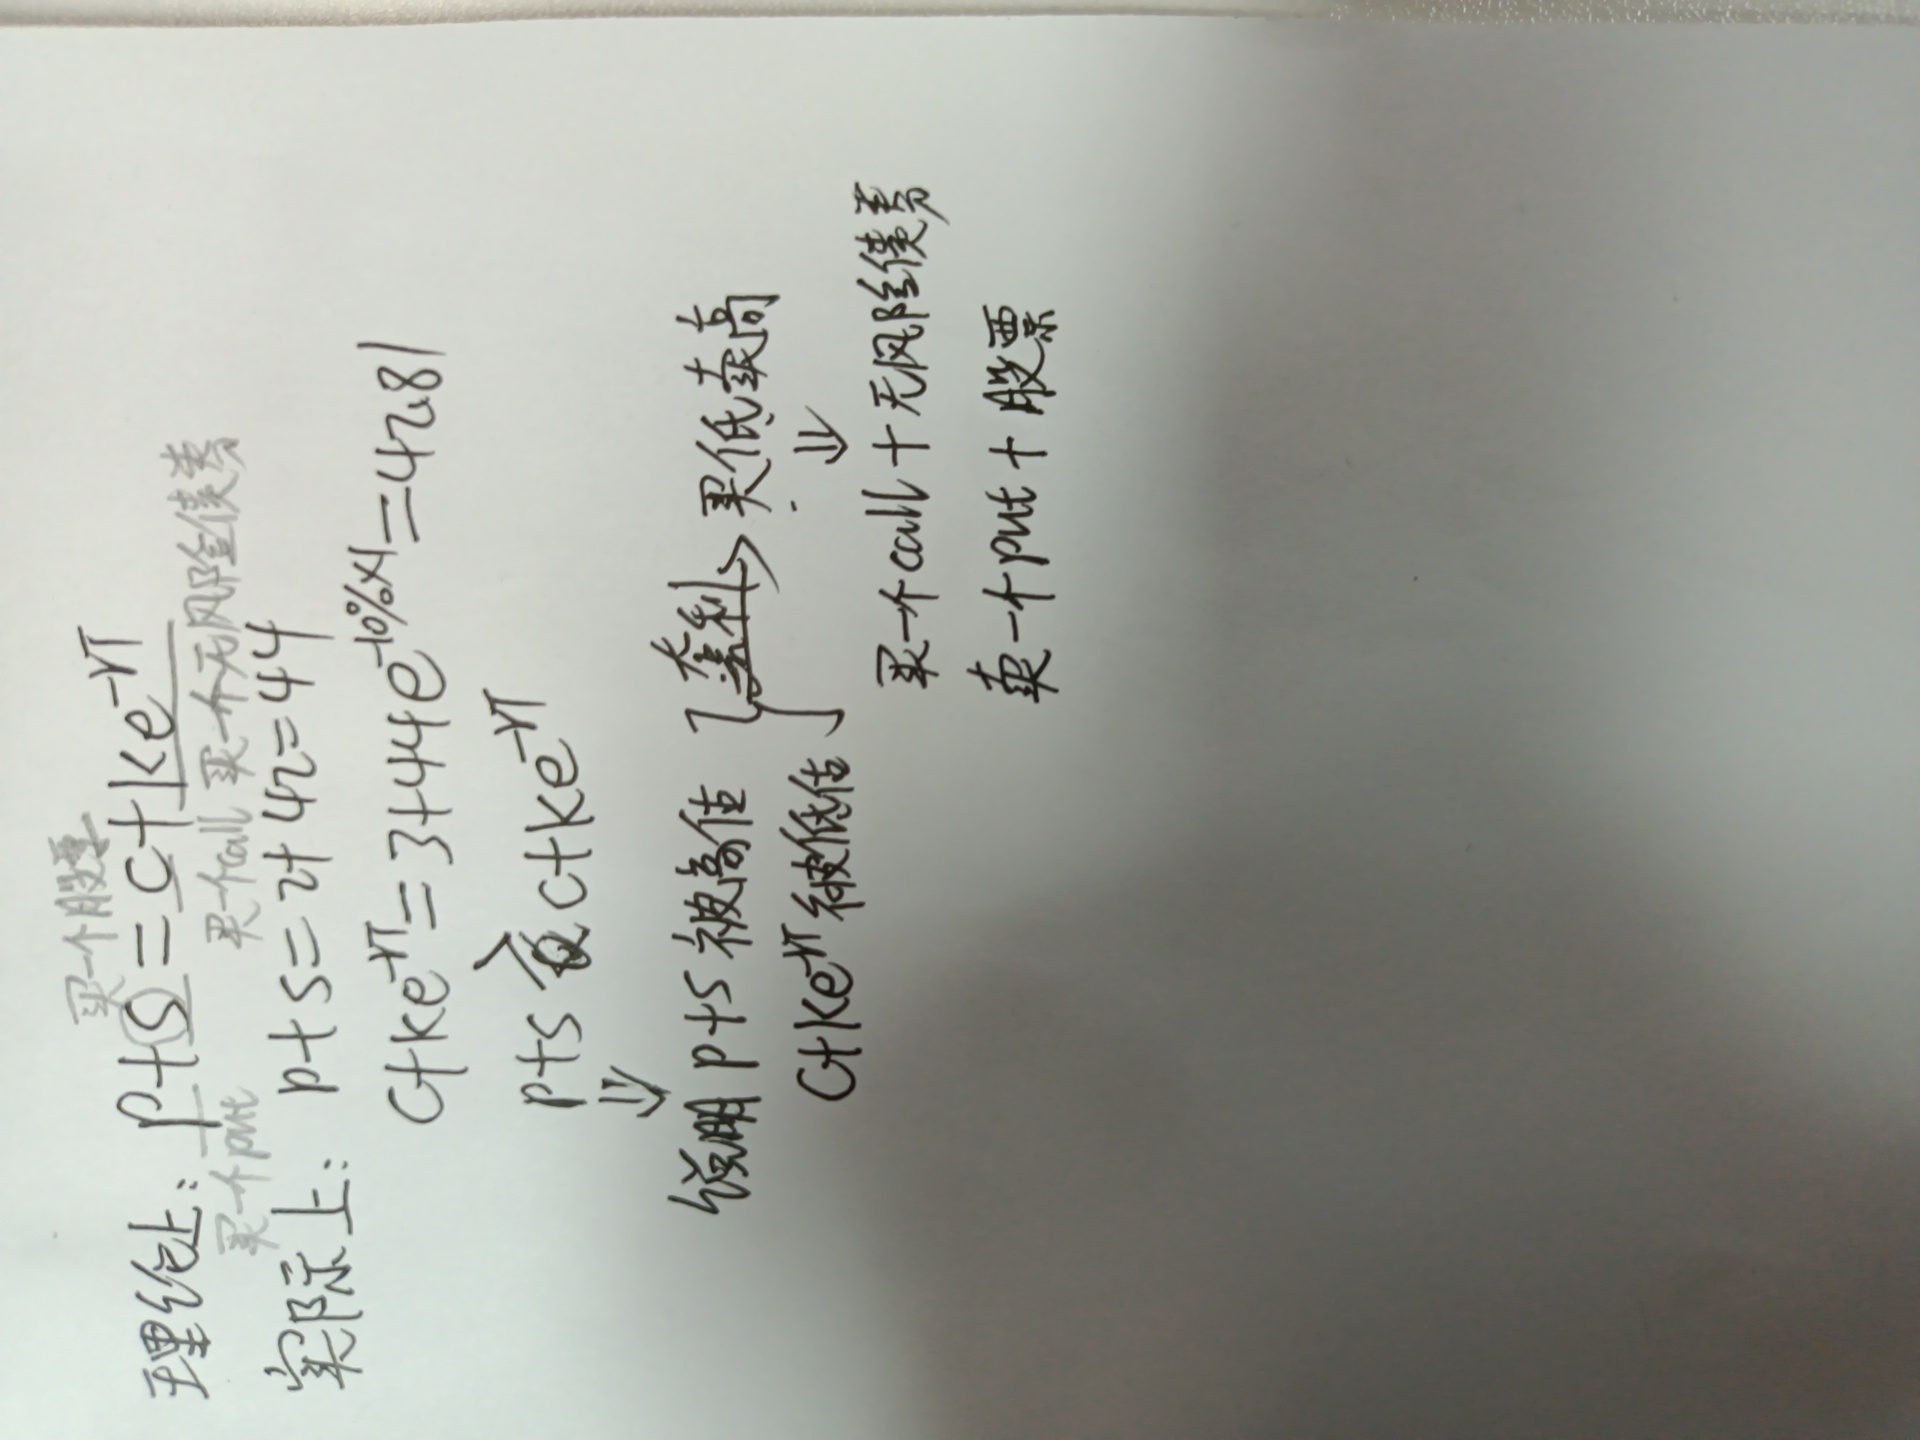 买一个股票
理论上: p+S=c+ke^-rT
买一个put 买一个call 买一个无风险债券
实际上: p+S=2+42=44
c+ke^-rT=3+44e^-10%×1=42.81
p+s>c+ke^-rT
⇓
说明 p+s 被高估 } 套利→买低卖高
c+ke^-rT 被低估 ⇓
买一个call+无风险债券
卖一个put+股票